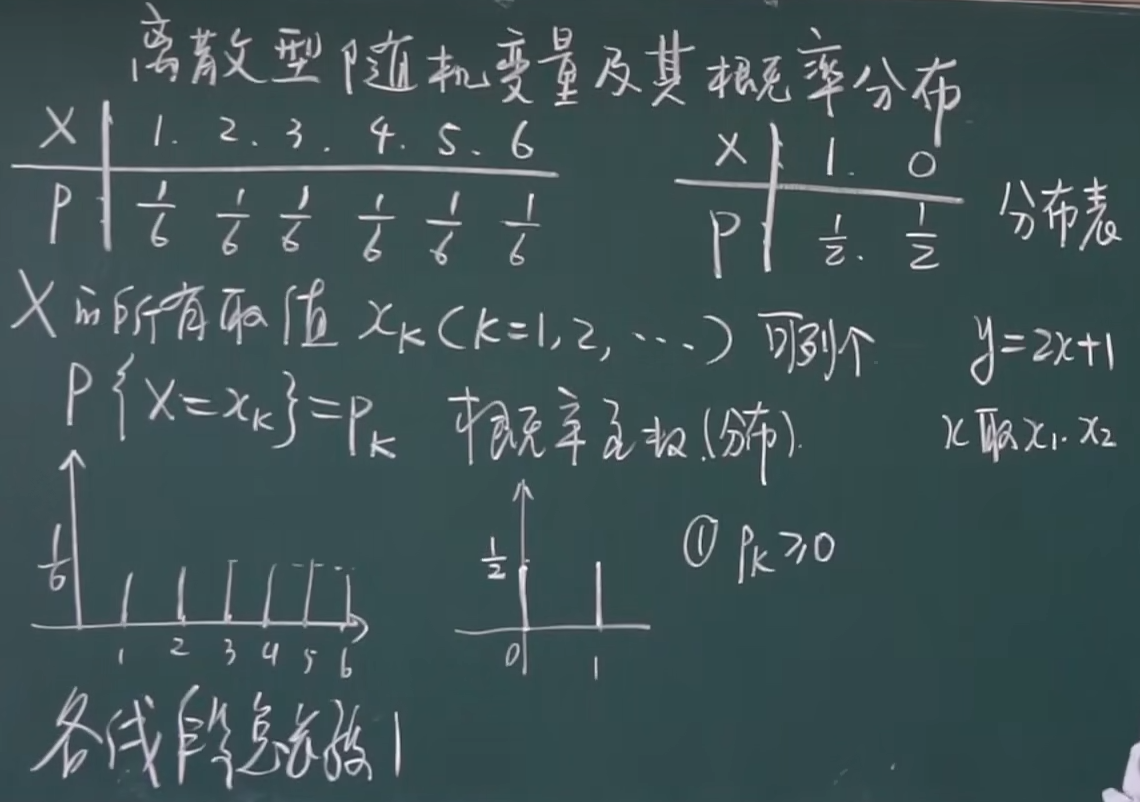 离散型随机变量及其概率分布
X | 1. 2. 3. 4. 5. 6
P | 1/6 1/6 1/6 1/6 1/6 1/6
X | 1. 0
P | 1/2. 1/2
分布表
X的所有取值 xₖ(k=1,2,…) 可列个
y=2x+1
P{X=xₖ}=pₖ 概率函数(分布).
x取x₁. x₂
1/6
1 2 3 4 5 6
1/2
0 1
① pₖ≥0
各线段总长度1